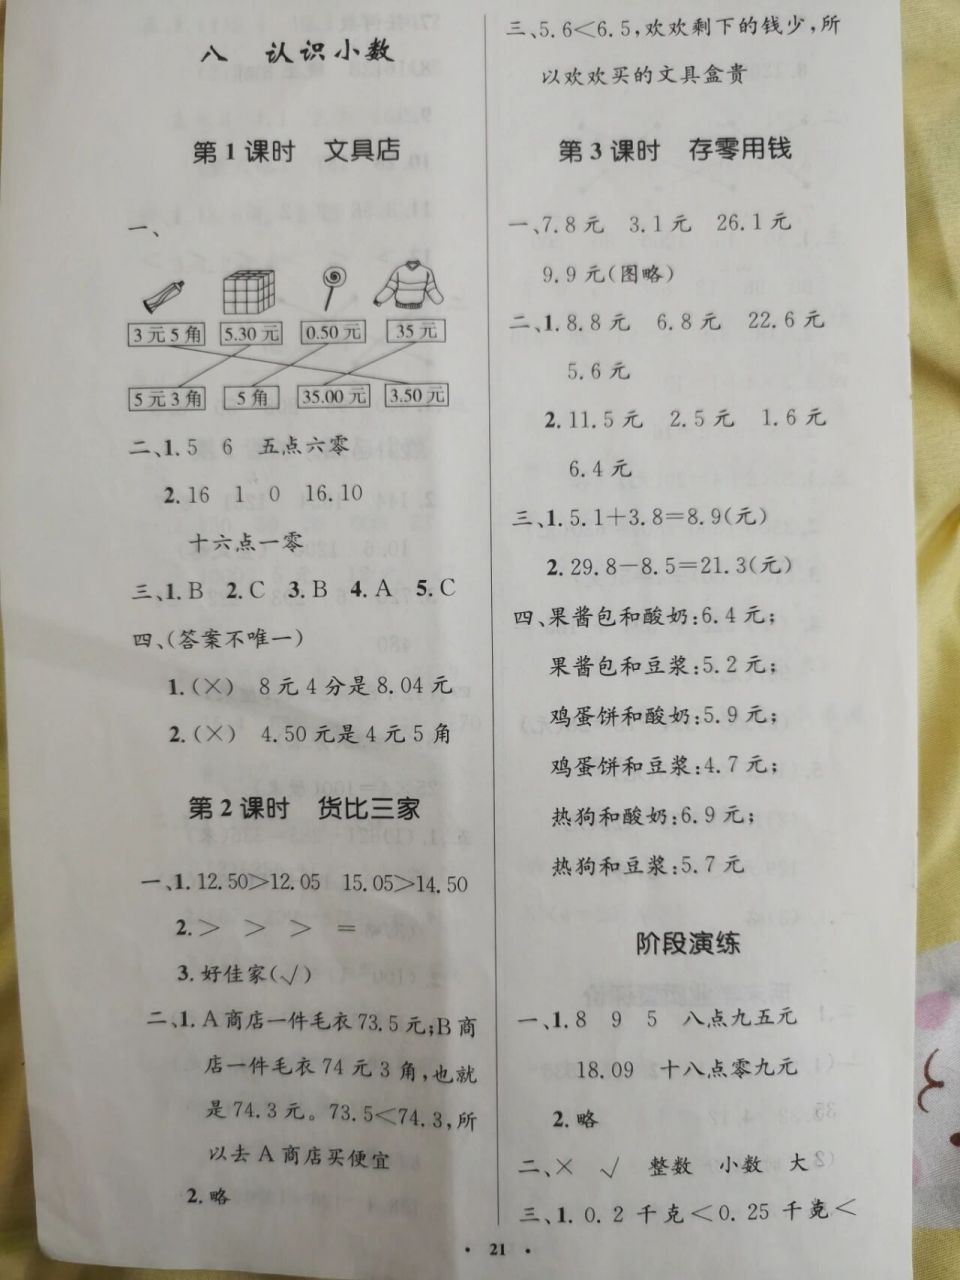 八 认识小数
第1课时 文具店
一、
3元5角 5.30元 0.50元 35元
5元3角 5角 35.00元 3.50元
二、1. 5 6 五点六零
2. 16 1 0 16.10
十六点一零
三、1. B 2. C 3. B 4. A 5. C
四、(答案不唯一)
1. (×) 8元4分是8.04元
2. (×) 4.50元是4元5角
第2课时 货比三家
一、1. 12.50>12.05 15.05>14.50
2. > > > =
3. 好佳家(√)
二、1. A商店一件毛衣73.5元;B商
店一件毛衣74元3角,也就
是74.3元。73.5<74.3,所
以去A商店买便宜
2. 略
三、5.6<6.5,欢欢剩下的钱少,所
以欢欢买的文具盒贵
第3课时 存零用钱
一、7.8元 3.1元 26.1元
9.9元(图略)
二、1. 8.8元 6.8元 22.6元
5.6元
2. 11.5元 2.5元 1.6元
6.4元
三、1. 5.1+3.8=8.9(元)
2. 29.8-8.5=21.3(元)
四、果酱包和酸奶:6.4元;
果酱包和豆浆:5.2元;
鸡蛋饼和酸奶:5.9元;
鸡蛋饼和豆浆:4.7元;
热狗和酸奶:6.9元;
热狗和豆浆:5.7元
阶段演练
一、1. 8 9 5 八点九五元
18.09 十八点零九元
2. 略
二、× √ 整数 小数 大
三、1. 0.2千克<0.25千克<
· 21 ·